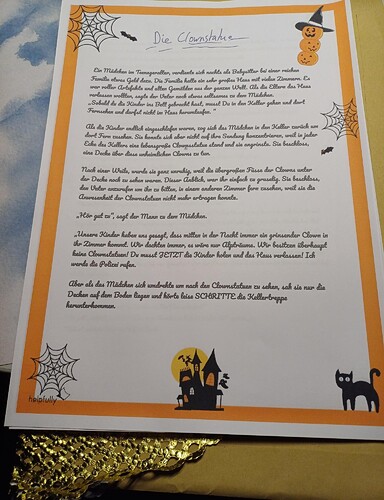 Die Clownstatue
Ein Mädchen im Teenageralter, verdiente sich nachts als Babysitter bei einer reichen
Familie etwas Geld dazu. Die Familie hatte ein sehr großes Haus mit vielen Zimmern. Es
war voller Artefakte und alten Gemälden aus der ganzen Welt. Als die Eltern das Haus
verlassen wollten, sagte der Vater noch etwas seltsames zu dem Mädchen.
„Sobald du die Kinder ins Bett gebracht hast, musst Du in den Keller gehen und dort
Fernsehen und darfst nicht im Haus herumlaufen."
Als die Kinder endlich eingeschlafen waren, zog sich das Mädchen in den Keller zurück um
dort Fern zusehen. Sie konnte sich aber nicht auf ihre Sendung konzentrieren, weil in jeder
Ecke des Kellers eine lebensgroße Clownstatue stand und sie angrinste. Sie beschloss,
eine Decke über diese unheimlichen Clowns zu tun.
Nach einer Weile, wurde sie ganz unruhig, weil die übergroßen Füsse der Clowns unter
der Decke noch zu sehen waren. Dieser Anblick, war ihr einfach zu gruselig. Sie beschloss,
den Vater anzurufen um ihn zu bitten, in einem anderen Zimmer fern zusehen, weil sie die
Anwesenheit der Clownstatuen nicht mehr ertragen konnte.
„Hör gut zu", sagt der Mann zu dem Mädchen.
„Unsere Kinder haben uns gesagt, dass mitten in der Nacht immer ein grinsender Clown in
ihr Zimmer kommt. Wir dachten immer, es wäre nur Alpträume. Wir besitzen überhaupt
keine Clownstatuen! Du musst JETZT die Kinder holen und das Haus verlassen! Ich
werde die Polizei rufen.
Aber als das Mädchen sich umdrehte um nach den Clownstatuen zu sehen, sah sie nur die
Decken auf dem Boden liegen und hörte leise SCHRITTE die Kellertreppe
herunterkommen.
helpfully